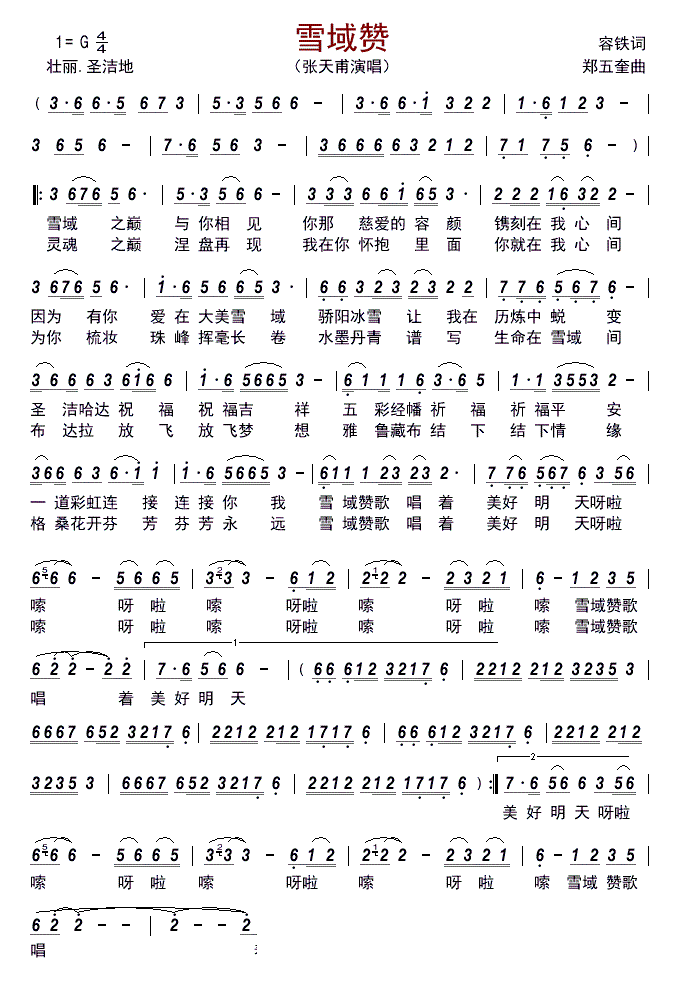 雪域赞
1= G 4/4 容铁词
壮丽.圣洁地 （张天甫演唱） 郑五奎曲
( 3·6 6·5 6 7 3 | 5·3 5 6 6 － | 3·6 6·i 3 2 2 | 1·6 1 2 3 － |
3 6 5 6 － | 7·6 5 6 3 － | 3 6 6 6 6 6 3 2 1 2 | 7 1 7 5 6 － ) |
‖: 3 6 7 6 5 6 · | 5·3 5 6 6 － | 3 3 3 6 6 i 6 5 3 · | 2 2 2 1 6 3 2 2 － |
雪域 之巅 与 你相 见 你那 慈爱的 容 颜 镌刻在 我 心 间
灵魂 之巅 涅 盘再 现 我在你 怀抱 里 面 你就在 我 心 间
3 6 7 6 5 6 · | i·6 5 5 6 6 5 3 － | 6 6 3 2 3 2 3 2 2 | 7 7 6 5 6 7 6 － |
因为 有你 爱 在 大美雪 域 骄阳冰雪 让 我在 历炼中 蜕 变
为你 梳妆 珠 峰 挥毫长 卷 水墨丹青 谱 写 生命在 雪域 间
3 6 6 6 3 6 i 6 6 | i·6 5 6 6 5 3 － | 6 1 1 1 6 3·6 5 | 1·1 3 5 5 3 2 － |
圣 洁哈达 祝 福 祝 福吉 祥 五 彩经幡 祈 福 祈 福平 安
布 达拉 放 飞 放 飞梦 想 雅 鲁藏布 结 下 结 下情 缘
3 6 6 6 3 6·i i | i·6 5 6 6 5 3 － | 6 1 1 1 2 3 2 3 2 · | 7 7 6 5 6 7 6 3 5 6 |
一 道彩虹连 接 连 接 你 我 雪 域赞歌 唱 着 美好 明 天呀啦
格 桑花开芬 芳 芬 芳 永 远 雪 域赞歌 唱 着 美好 明 天呀啦
6 5 6 6 － 5 6 6 5 | 3 2 3 3 － 6 1 2 | 2 1 2 2 － 2 3 2 1 | 6 － 1 2 3 5 |
嗦 呀 啦 嗦 呀啦 嗦 呀 啦 嗦 雪域赞歌
嗦 呀 啦 嗦 呀啦 嗦 呀 啦 嗦 雪域赞歌
1
6 2 2 － 2 2 | 7·6 5 6 － | ( 6 6 6 1 2 3 2 1 7 6 | 2 2 1 2 2 1 2 3 2 3 5 3 |
唱 着 美 好 明 天
6 6 6 7 6 5 2 3 2 1 7 6 | 2 2 1 2 2 1 2 1 7 1 7 6 | 6 6 6 1 2 3 2 1 7 6 | 2 2 1 2 2 1 2
2
3 2 3 5 3 | 6 6 6 7 6 5 2 3 2 1 7 6 | 2 2 1 2 2 1 2 1 7 1 7 6 ) :‖ 7·6 5 6 6 3 5 6 |
美 好 明 天 呀啦
6 5 6 6 － 5 6 6 5 | 3 2 3 3 － 6 1 2 | 2 1 2 2 － 2 3 2 1 | 6 － 1 2 3 5 |
嗦 呀 啦 嗦 呀啦 嗦 呀 啦 嗦 雪域 赞歌
6 2 2 － － | 2 － － 2
唱